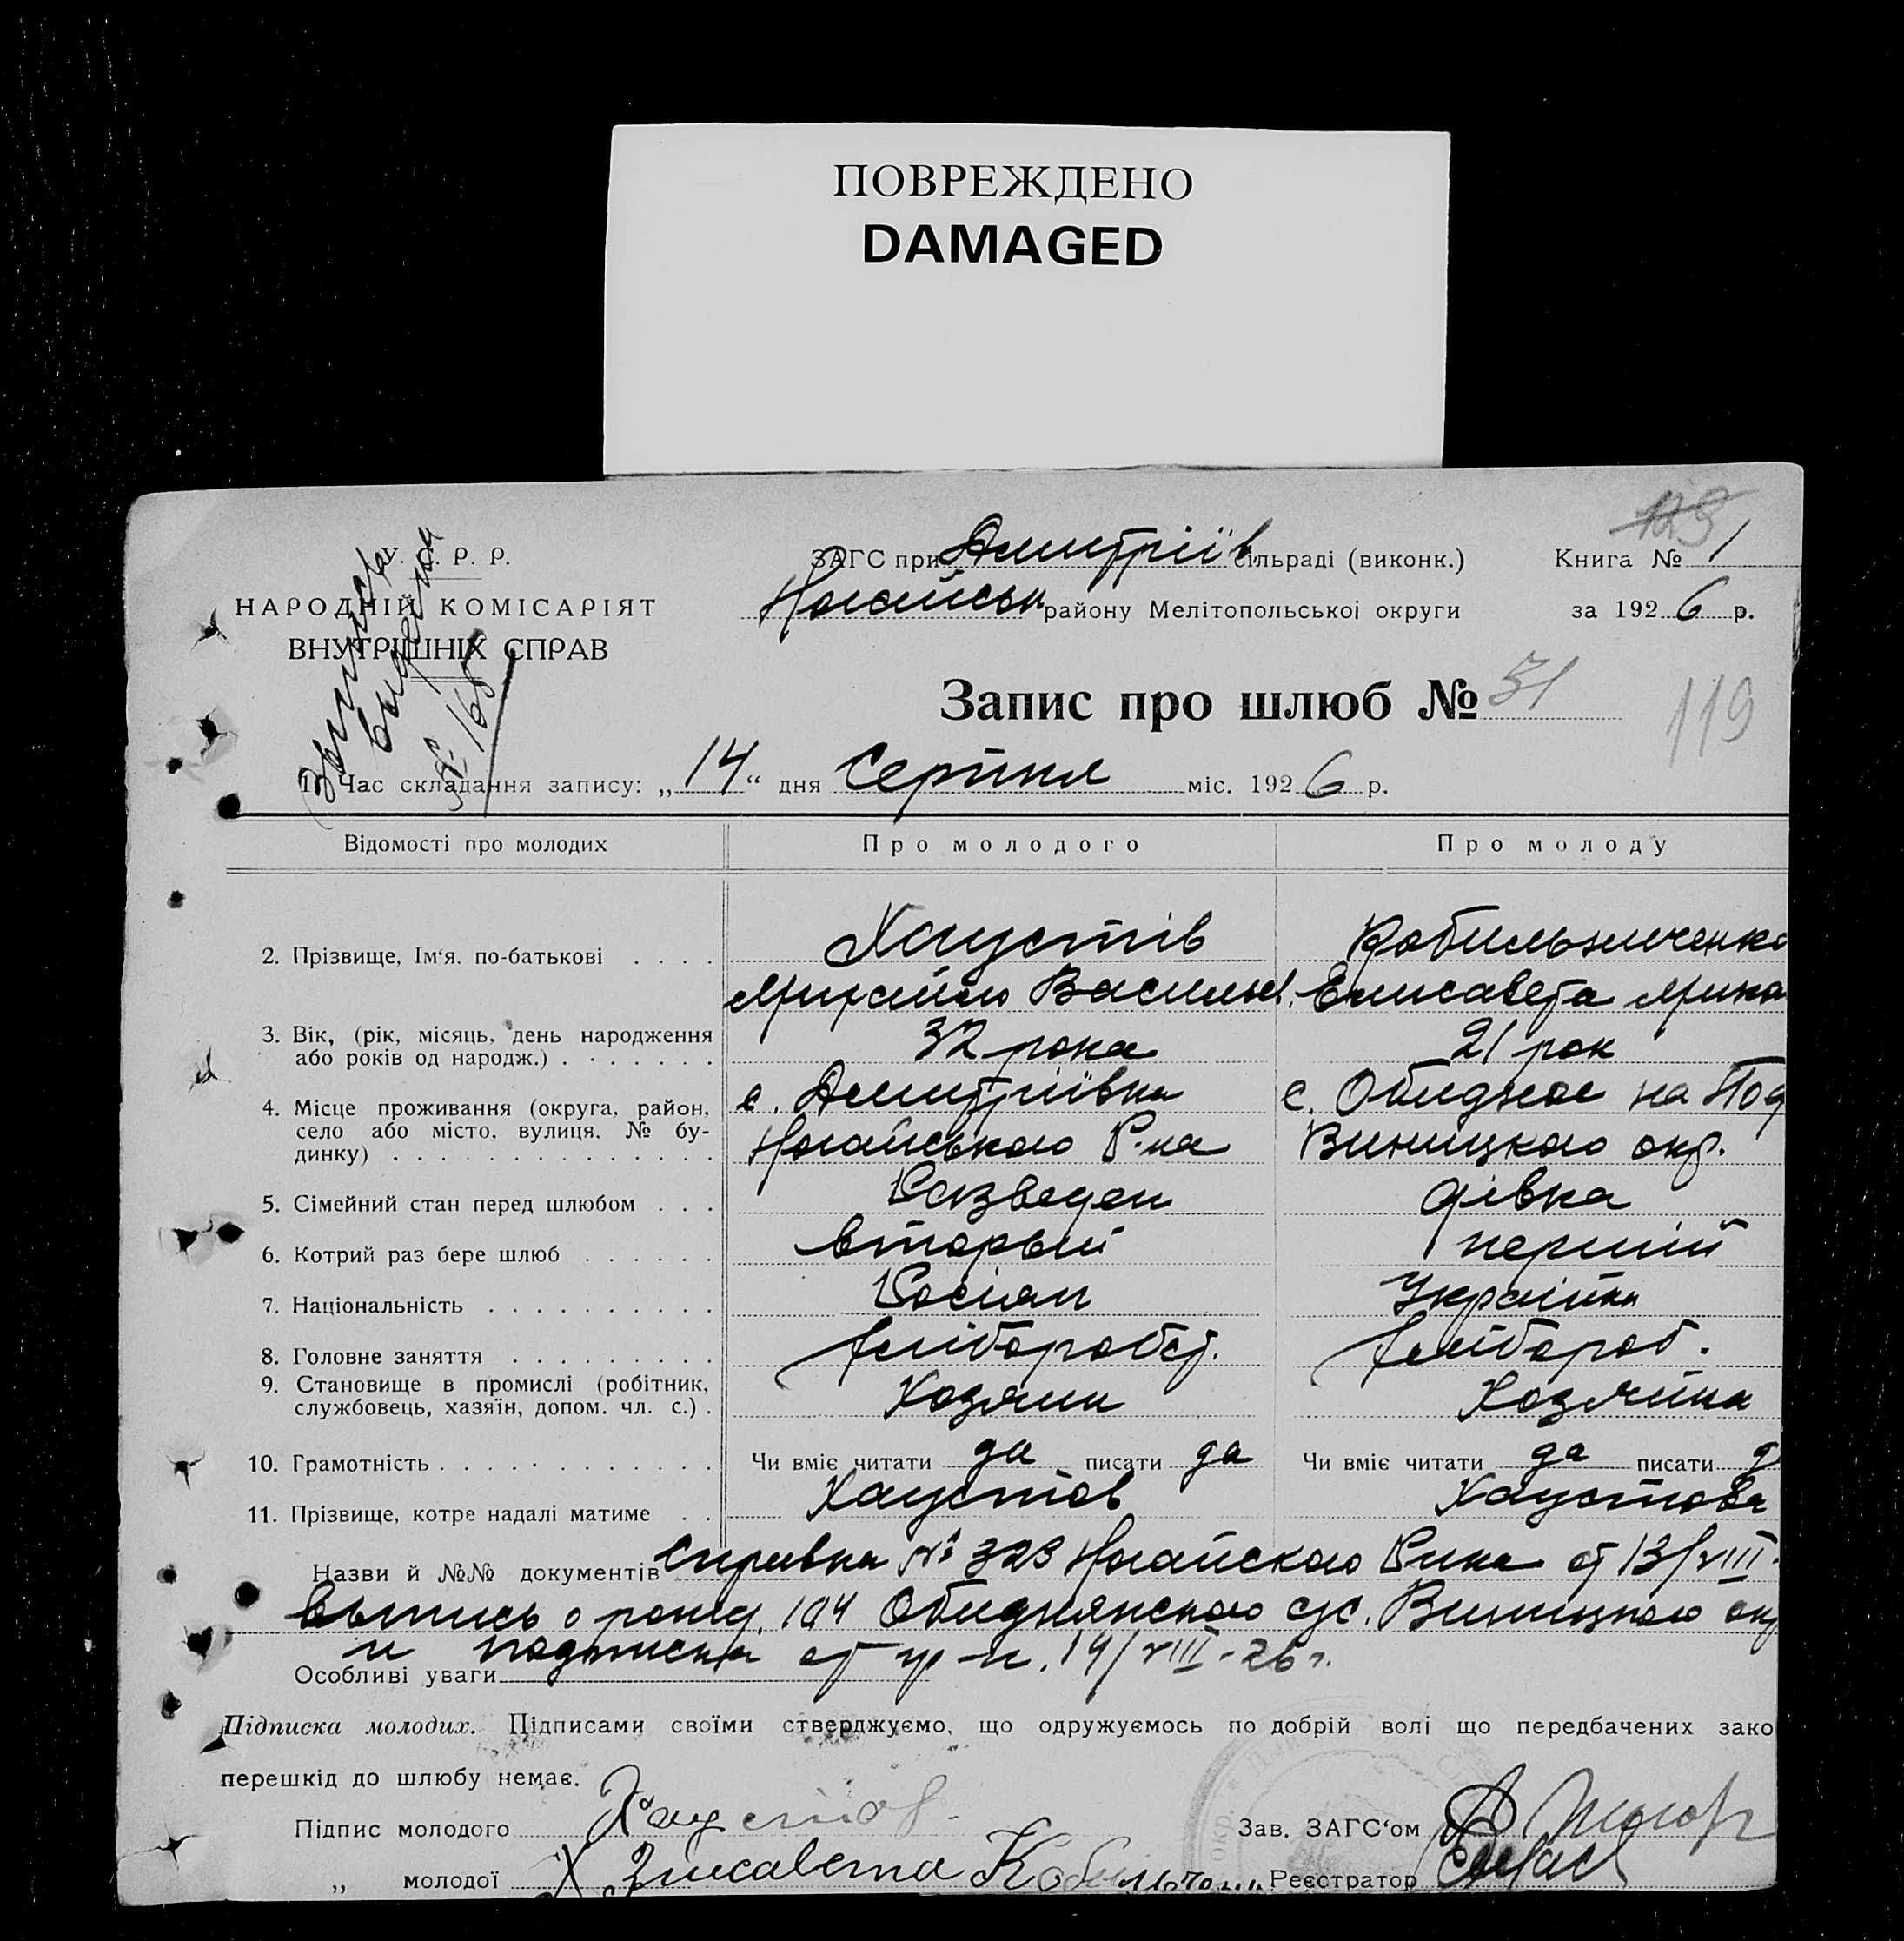 ПОВРЕЖДЕНО
DAMAGED
129
У. С. Р. Р.
НАРОДНІЙ КОМІСАРІЯТ
ВНУТРІШНІХ СПРАВ
№ 165
ЗАГС при Дмитріїв сільраді (виконк.)
Ногайськ району Мелітопольської округи
Книга № 1
за 1926 р.
Запис про шлюб № 31
119
1. Час складання запису: „14“ дня Серпня міс. 1926 р.
Відомості про молодих
Про молодого
Про молоду
2. Прізвище, Ім‘я. по-батькові . . . .
Хаустів
Михайло Васильев.
Кобильниченко
Елисавета Мика
3. Вік, (рік, місяць, день народження
або років од народж.) . . . . . . .
32 рока
21 рок
4. Місце проживання (округа, район,
село або місто, вулиця. № бу-
динку) . . . . . . . . . . . . . .
с. Дмитріївка
Ногайського Р-на
с. Обидное на Под
Виницкого окр.
5. Сімейний стан перед шлюбом . . .
Разведен
дівка
6. Котрий раз бере шлюб . . . . . .
вторый
перший
7. Національність . . . . . . . . . .
Росіян
Українка
8. Головне заняття . . . . . . . . .
хлібороб.
9. Становище в промислі (робітник,
службовець, хазяїн, допом. чл. с.) .
Хозяин
Хозяйка
10. Грамотність . . . . . . . . . . . .
Чи вміє читати да писати да
Чи вміє читати да писати д
11. Прізвище, котре надалі матиме . .
Хаустов
Хаустова
Назви й №№ документів Справка № 323 Ногайского Рика от 13/VIII.
Выпись о рожд. 104 Обиднянского с/с. Виницкого окр
и подписка от 14/VIII-26 г.
Особливі уваги
Підписка молодих. Підписами своїми стверджуємо, що одружуємось по добрій волі що передбачених зако
перешкід до шлюбу немає.
Підпис молодого Хаустов.
Зав. ЗАГС‘ом
„ молодої
Реєстратор